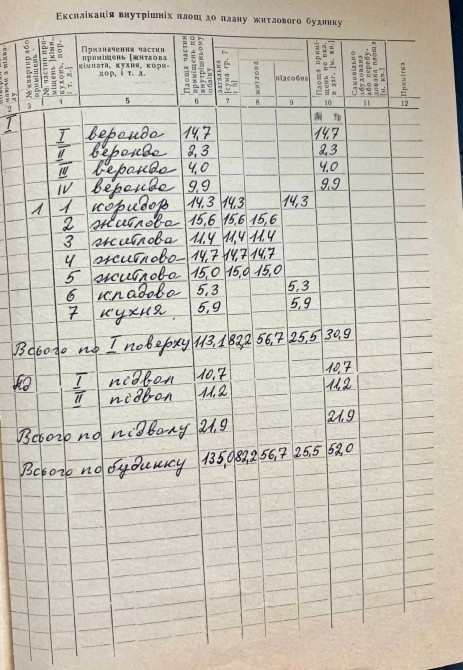 Експлікація внутрішніх площ до плану житлового будинку
№ квартир або приміщень
Призначення частин приміщень [житлова кімната, кухня, коридор, і т. д.
Площа частин приміщень по внутрішньому обміру
загальна [сума гр. 7 і 8]
житлова
підсобна
Самовільно збудована або перебудована площа [в. кв.]
Примітка
2 3 4 5 6 7 8 9 10 11 12
I
I веранда 14,7 14,7
II веранда 2,3 2,3
III веранда 4,0 4,0
IV веранда 9,9 9,9
1 1 коридор 14,3 14,3 14,3
2 житлова 15,6 15,6 15,6
3 житлова 11,4 11,4 11,4
4 житлова 14,7 14,7 14,7
5 житлова 15,0 15,0 15,0
6 кладова 5,3 5,3
7 кухня 5,9 5,9
Всього по I поверху 113,1 82,2 56,7 25,5 30,9
пд I підвал 10,7 10,7
II підвал 11,2 11,2
Всього по підвалу 21,9 21,9
Всього по будинку 135,0 82,2 56,7 25,5 52,0